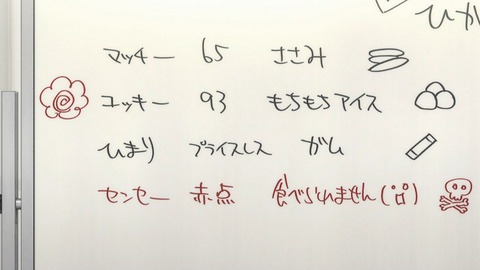 ひか
マッチー 65 ささみ
ユッキー 93 もちもちアイス
ひまり プライスレス ガム
センセー 赤点 食べられません